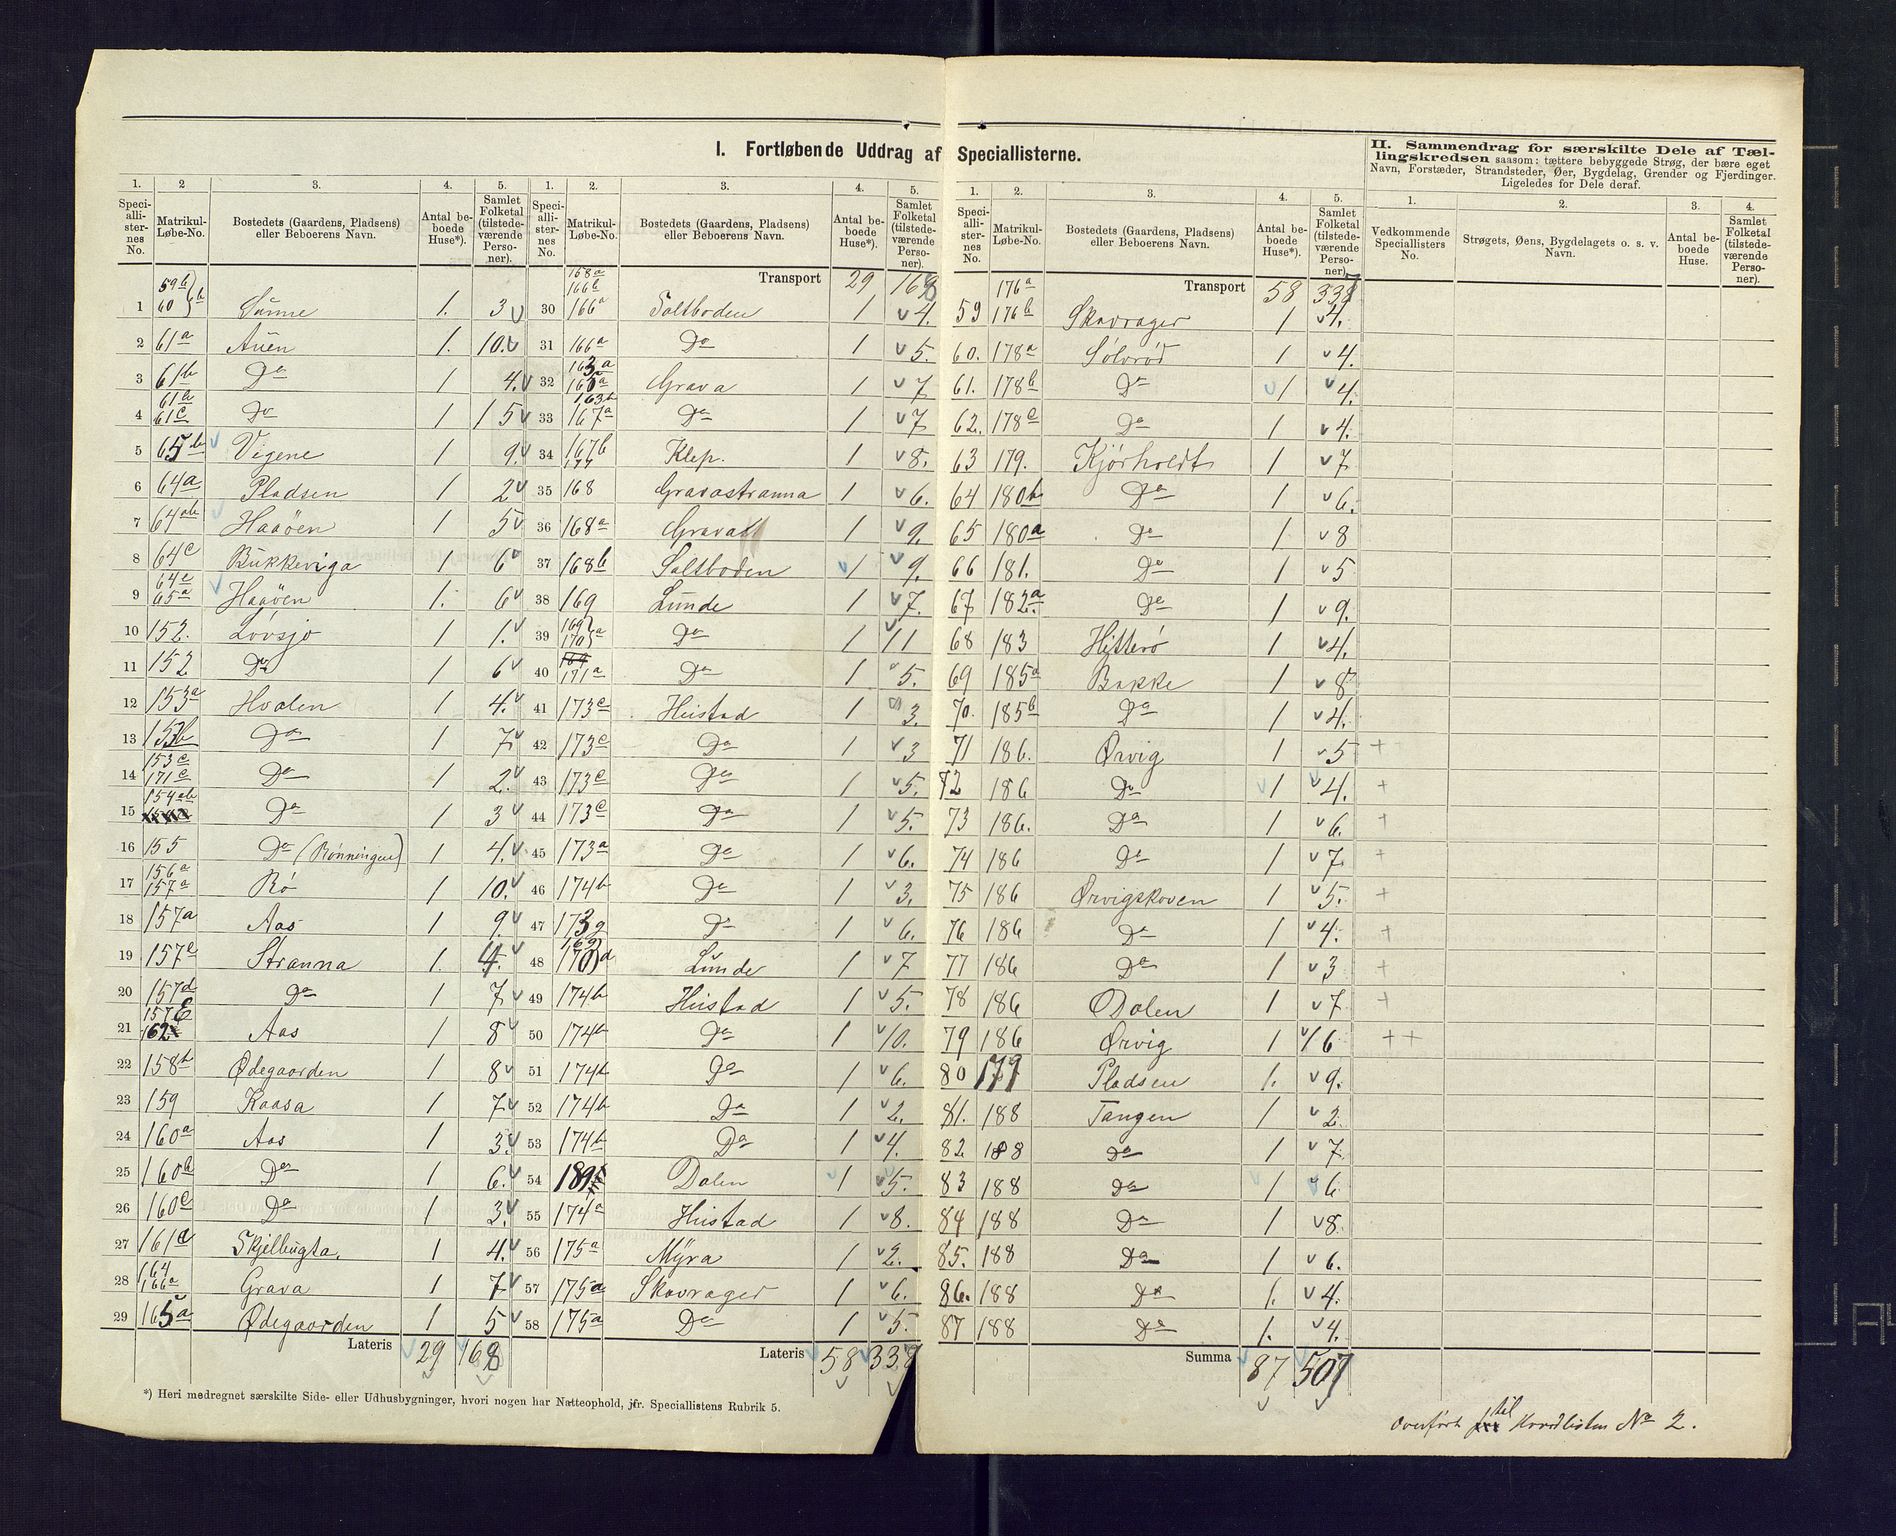 I. Fortløbende Uddrag af Speciallisterne.
II. Sammendrag for særskilte Dele af Tæl-
lingskredsen saasom: tættere bebyggede Strøg, der bære eget
Navn, Forstæder, Strandsteder, Øer, Bygdelag, Grender og Fjerdinger.
Ligeledes for Dele deraf.
1. 2 3. 4. 5.
Speciallisternes No. Matrikul-Løbe-No. Bostedets (Gaardens, Pladsens) eller Beboerens Navn. Antal beboede Huse*). Samlet Folketal (tilstedeværende Personer).
1 59b 60 b Sünne 1. 3
2 61a Auen 1. 10.
3 61b Do 1 4.
4 61b 61c Do 1 15
5 65b Vigene 1 9.
6 64a Pladsen 1 2
7 64ab Haaöen 1 5
8 64c Bukkeviga 1 6
9 64e 65a Haaöen 1. 6
10 152. Lövsjö 1 1.
11 152 Do 1 6
12 153a Hvalen 1 4.
13 153b Do 1 7
14 153c 171c Do 1 2.
15 154ab Do 1 3
16 155 Do (Rönningen) 1 4.
17 156a 157a Rö 1 10.
18 157a Aas 1 9.
19 157c Stranna 1. 4.
20 157d Do 1 7
21 157E 162 Aas 1 8
22 158b Ødegaarden 1 8
23 159 Kaasa 1 7
24 160a Aas 1 3.
25 160b Do 1 6.
26 160c Do 1 3.
27 161a Skjelbugta. 1 4.
28 164 166a Grava 1 7
29 165a Ødegaarden 1 5
Lateris 29 168
*) Heri medregnet særskilte Side- eller Udhusbygninger, hvori nogen har Natteophold, jfr. Speciallistens Rubrik 5.
1. 2. 3. 4. 5.
Speciallisternes No. Matrikul-Løbe-No. Bostedets (Gaardens, Pladsens) eller Beboerens Navn. Antal beboede Huse*). Samlet Folketal (tilstedeværende Personer).
Transport 29 168
30 168a 166b 166a Saltboden 1 4.
31 166a Do 1 5.
32 163a 160a Grava 1 7
33 163b 167a Do 1 7
34 167b 177 Klep. 1 8.
35 168 Gravastranna 1 6.
36 168a Grava 1 9.
37 168b Saltboden 1 9.
38 169 Lunde 1 7.
39 169 170 a Do 1 11
40 171a Do 1 5.
41 173c Hustad 1 3.
42 173c Do 1 3
43 173c Do 1 5.
44 173c Do 1 5.
45 173a Do 1 6.
46 174b Do 1 3.
47 173g Do 1 6.
48 169 170 d Lunde 1 7
49 174b Hustad 1 5.
50 174b Do 1 10.
51 174b Do 1 6.
52 174b Do 1 2.
53 174b Do 1 4.
54 189 Dalen 1 5.
55 174a Hustad 1 8.
56 175a Myra 1 2.
57 175a Skavrager 1 6.
58 175a Do 1 5.
Lateris 58 338
1. 2. 3. 4. 5.
Speciallisternes No. Matrikul-Løbe-No. Bostedets (Gaardens, Pladsens) eller Beboerens Navn. Antal beboede Huse*). Samlet Folketal (tilstedeværende Personer).
Transport 58 338
59 176a 176b Skavrager 1 4.
60. 178a Sölvröd 1 4.
61. 178b Do 1 4.
62. 178c Do 1 4.
63 179. Kjörholdt 1 7
64 180b Do 1 6.
65 180a Do 1 8
66 181. Do 1 5
67 182a Do 1 9.
68 183 Hitterö 1 4.
69 185a Bakke 1 8
70. 185b Do 1 4.
71 186. Ørvig 1 5 +
72 186 Do 1 4. +
73 186. Do 1 6. +
74 186 Do 1 7. +
75 186 Ørvigskoven 1 5. +
76 186 Do 1 4. +
77 186 Do 1 3 +
78 186 Dalen 1 7 +
79 186 Ørvig 1 6 ++
80 177 Pladsen 1. 9.
81. 188 Tangen 1 2
82. 188 Do 1 7.
83 188 Do 1 6
84 188 Do 1 8.
85. 188 Do 1 6.
86. 188 Do 1. 4.
87 188 Do 1. 4.
Summa 87 507
1. 2. 3. 4.
Vedkommende Speciallisters No. Strøgets, Øens, Bygdelagets o. s. v. Navn. Antal beboede Huse. Samlet Folketal (tilstedeværende Personer).
Overført til Hovedlisten No 2.